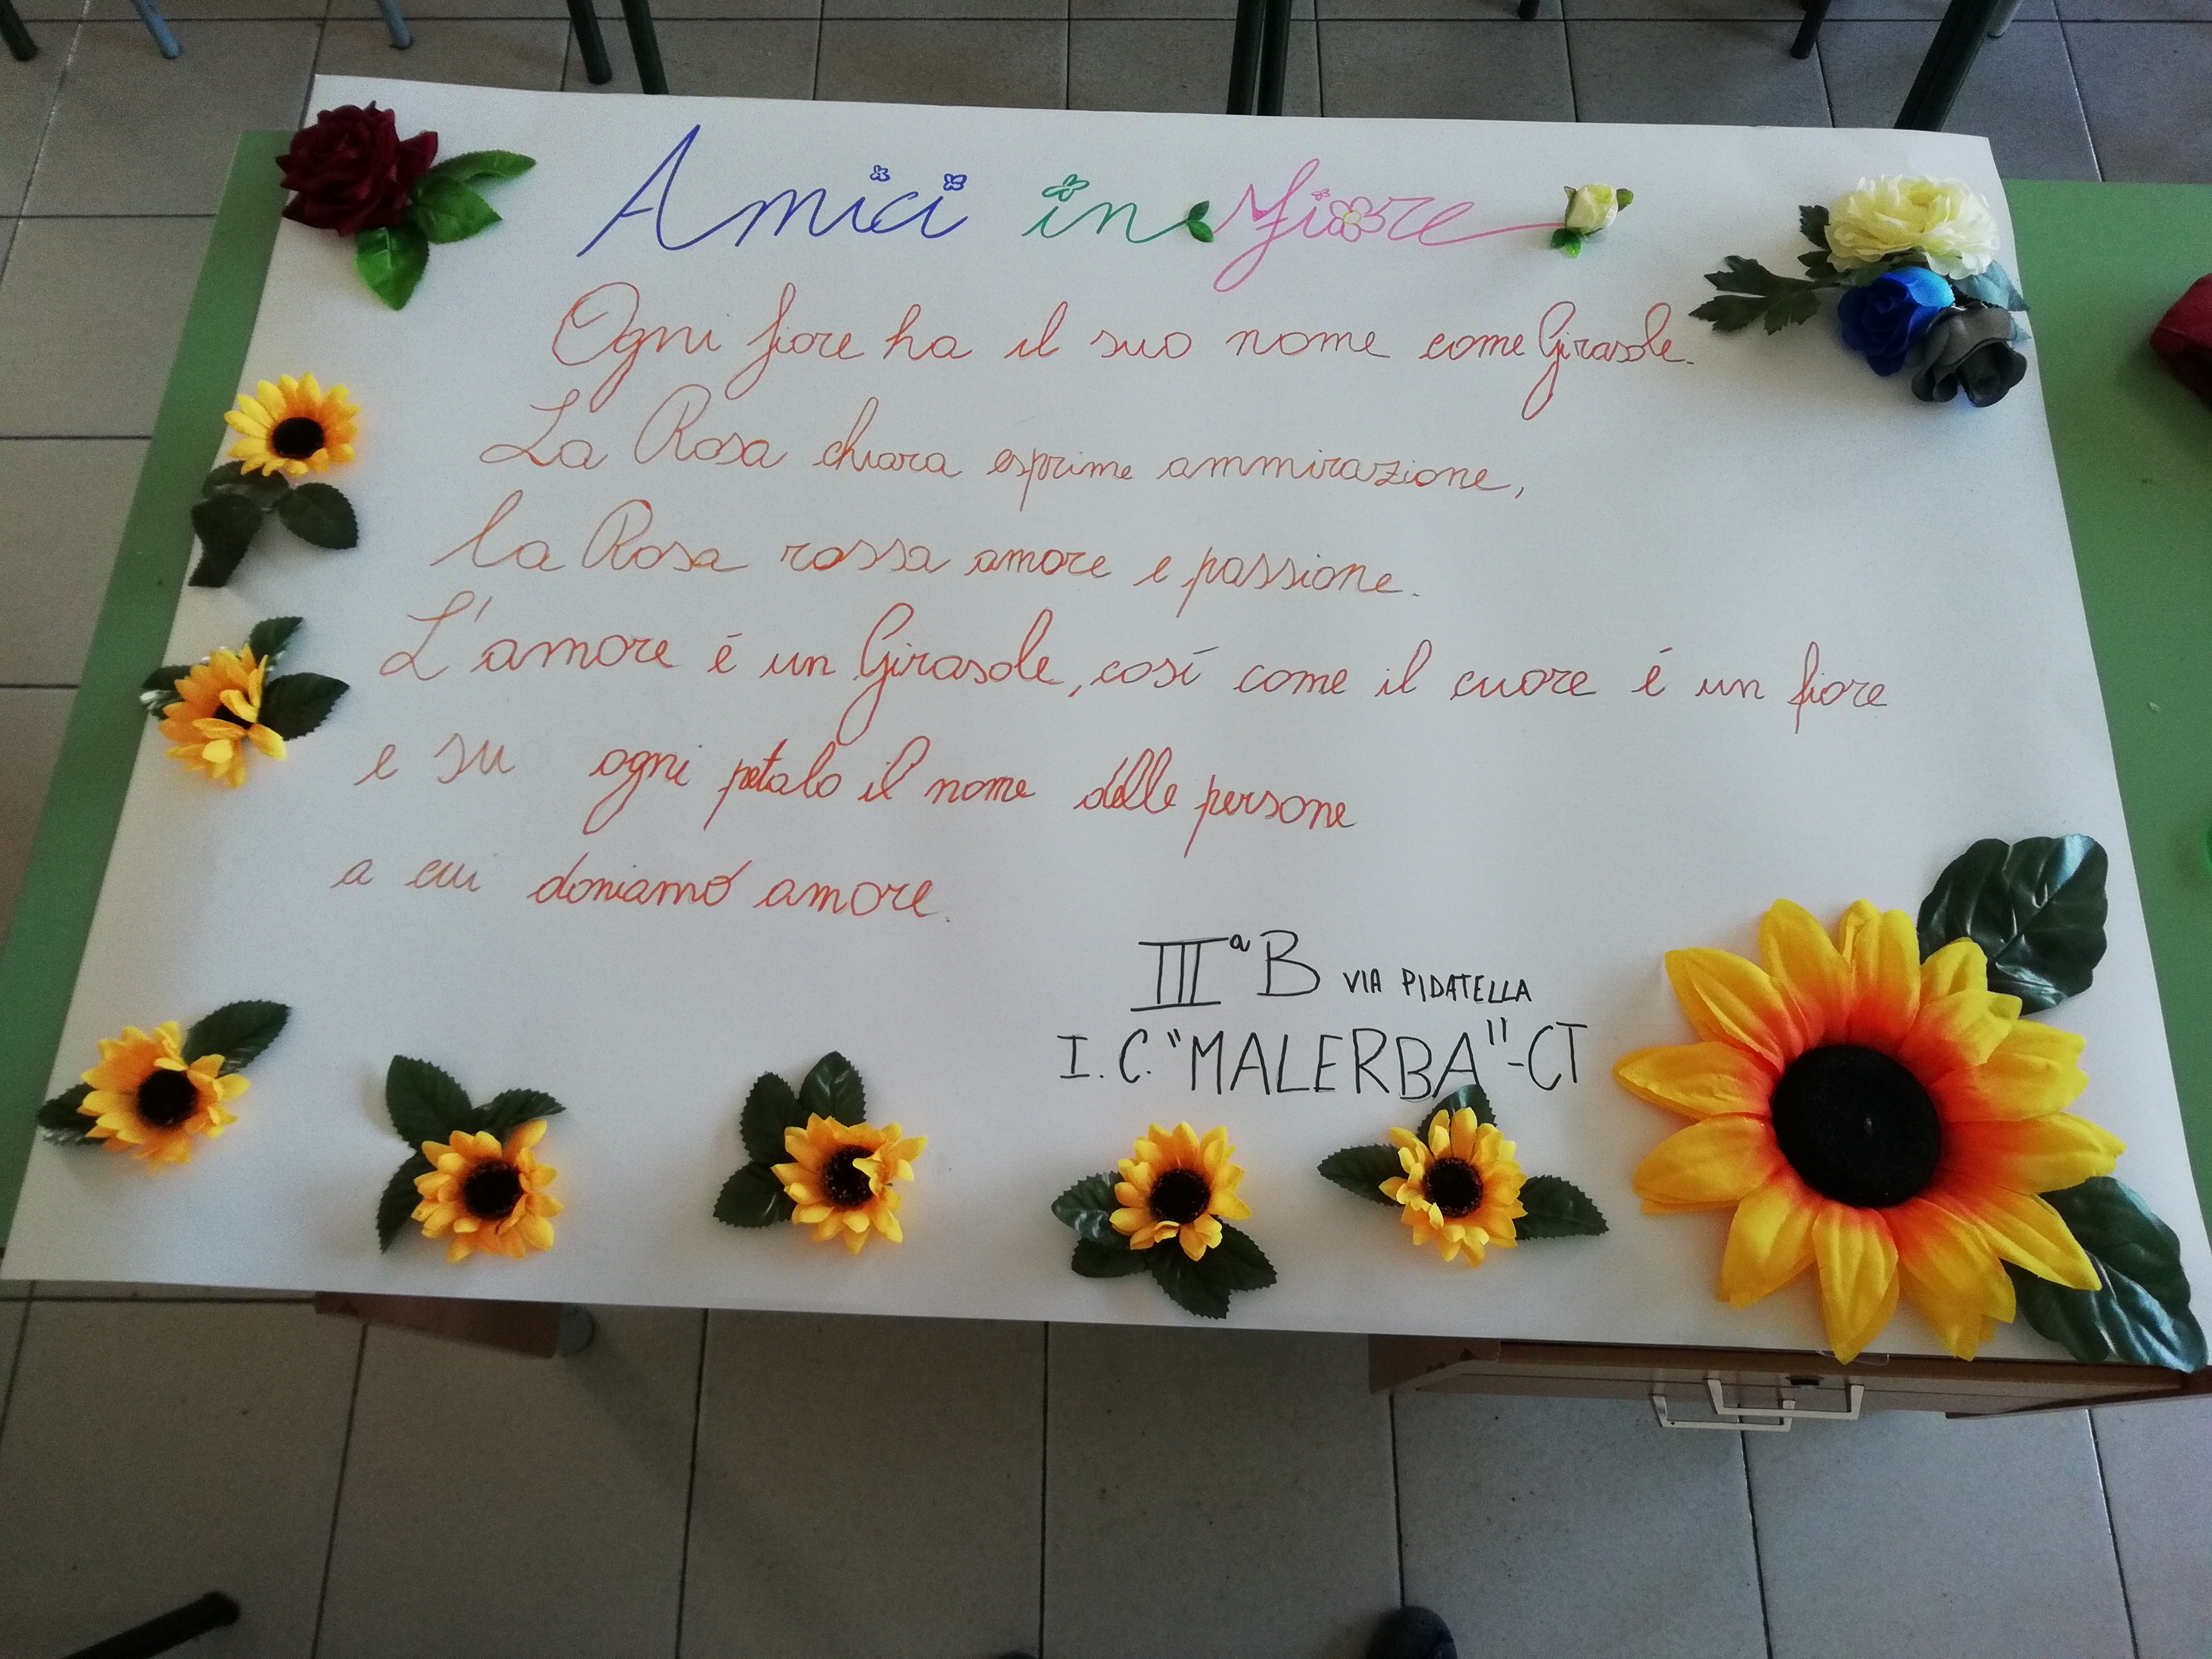 Amici in fiore
Ogni fiore ha il suo nome come Girasole.
La Rosa chiara esprime ammirazione,
la Rosa rossa amore e passione.
L'amore é un Girasole, così come il cuore é un fiore
e su ogni petalo il nome delle persone
a cui doniamo amore.
IIIª B VIA PIDATELLA
I.C. "MALERBA"-CT